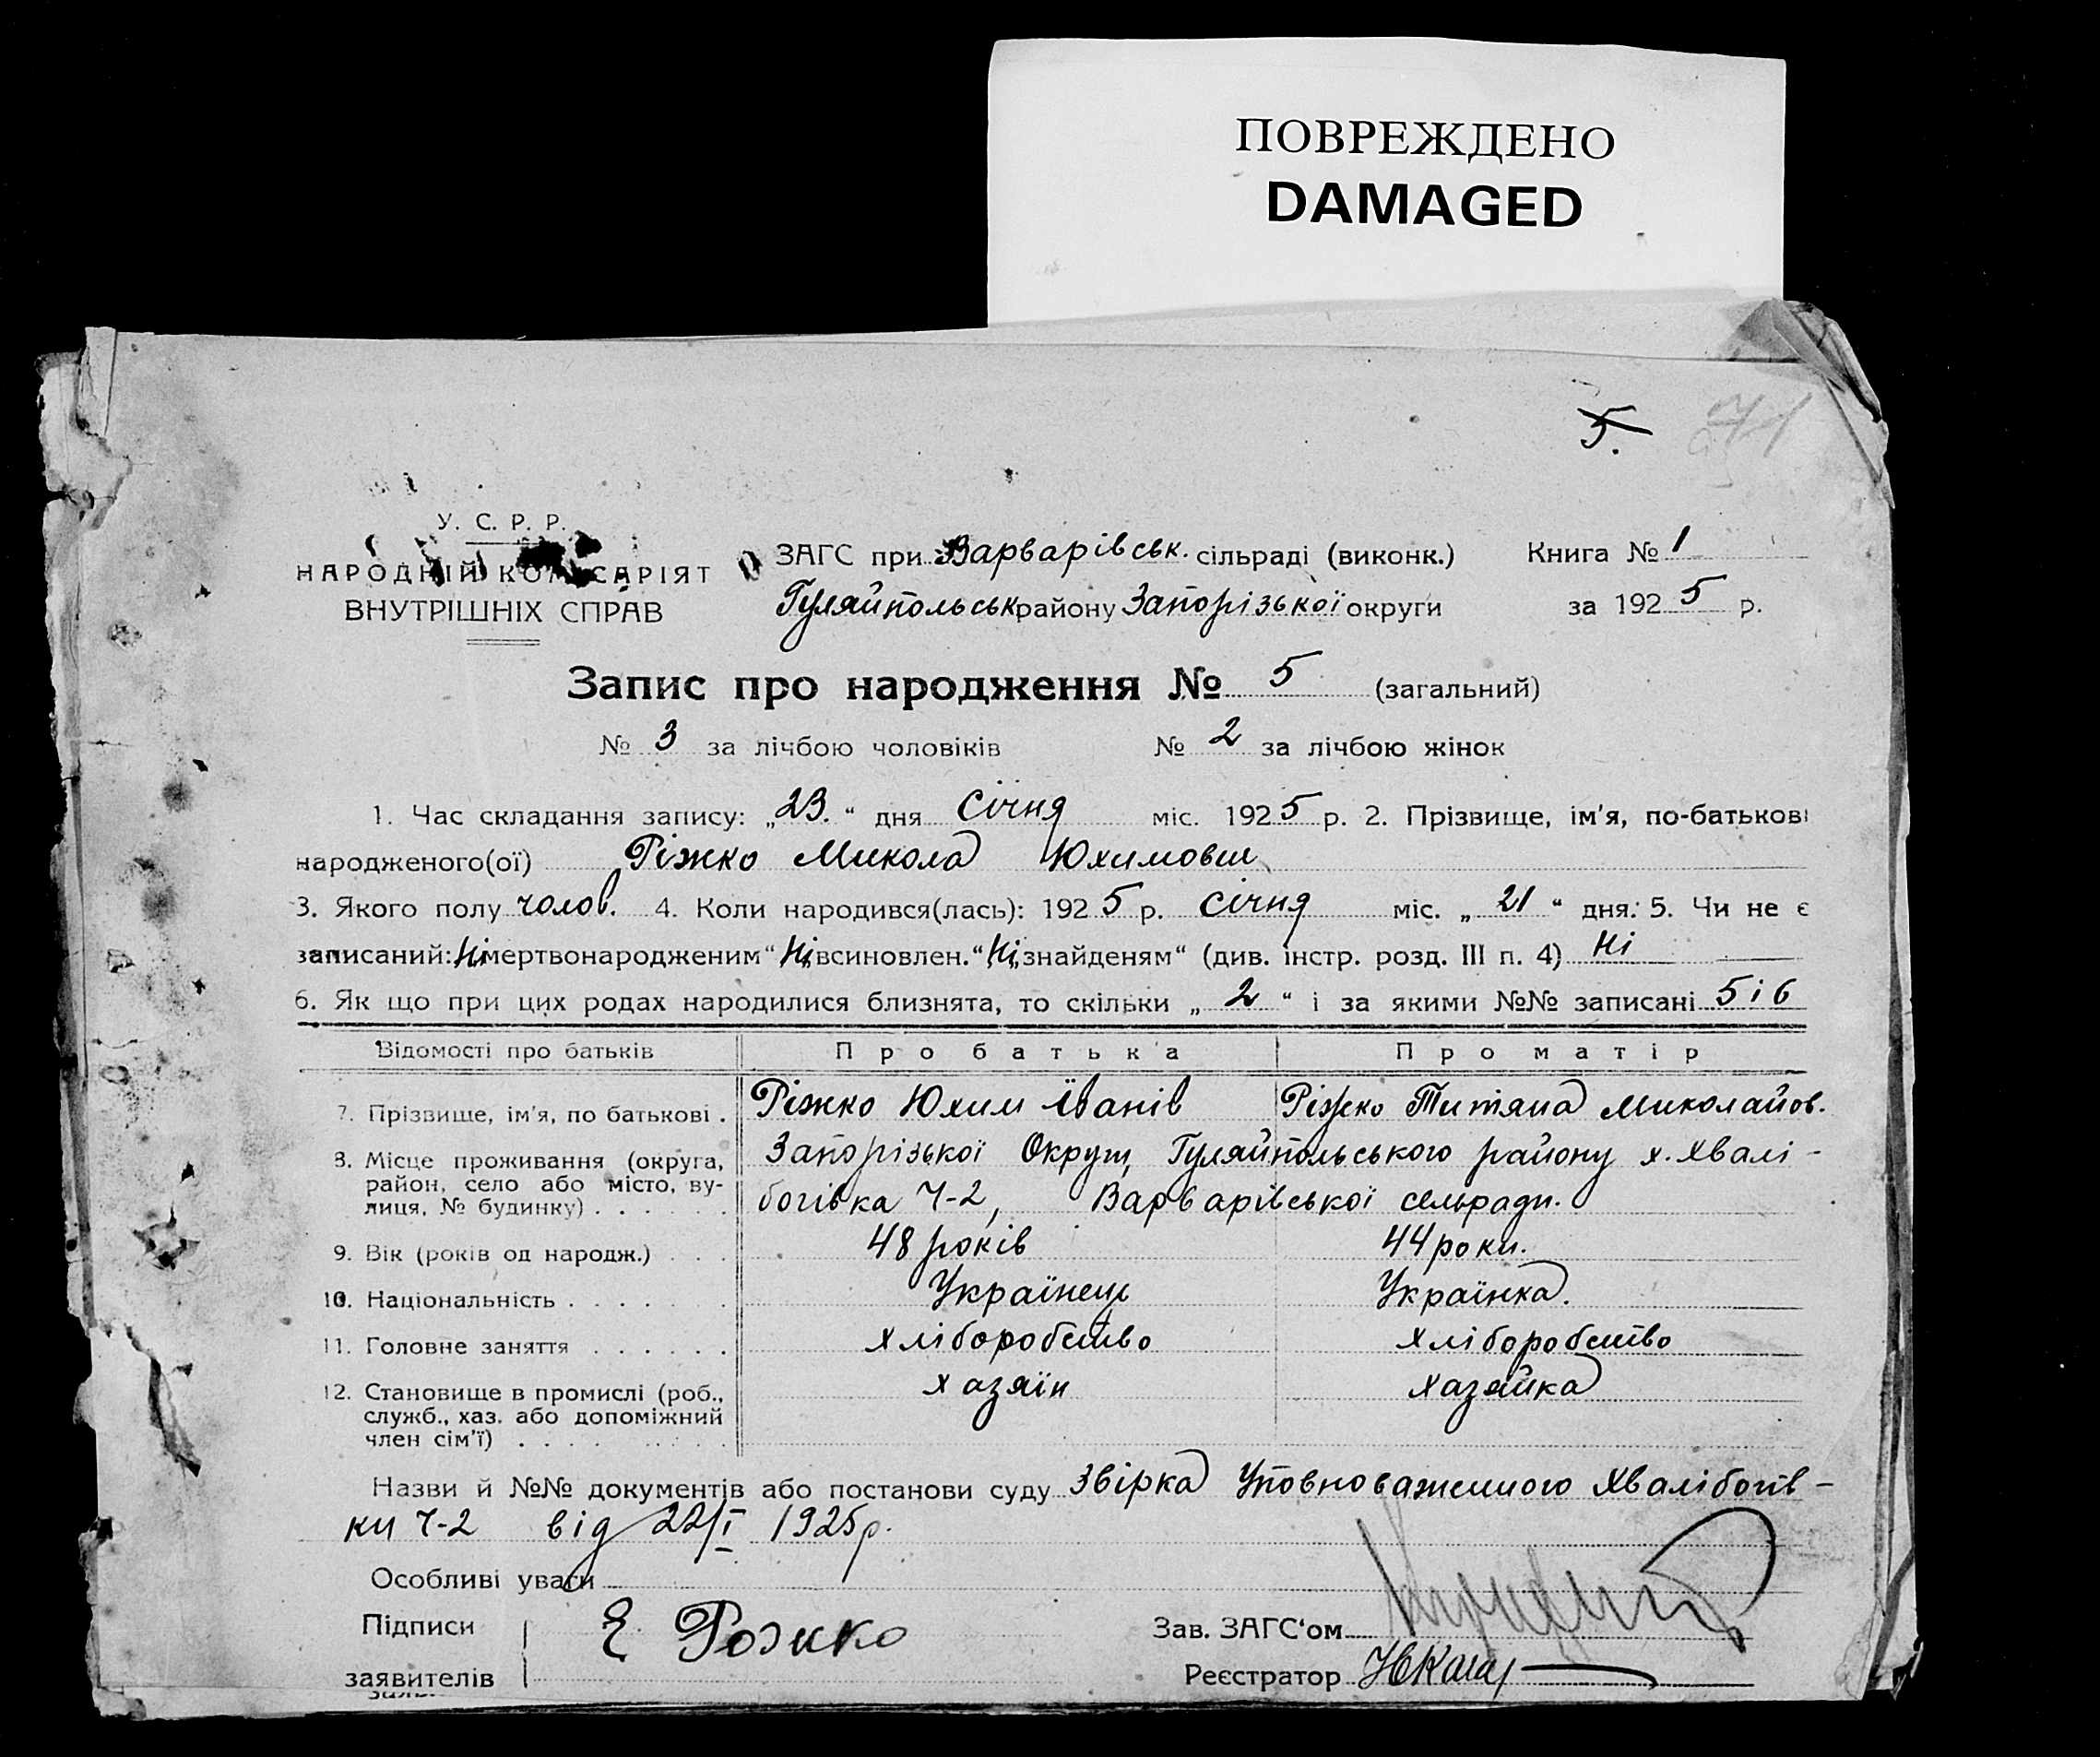 ПОВРЕЖДЕНО
DAMAGED
5.
У. С. Р. Р.
НАРОДНІЙ КОМІСАРІЯТ
ВНУТРІШНІХ СПРАВ
ЗАГС при Варварівськ. сільраді (виконк.) Книга № 1
Гуляйпольськ району Запорізької округи за 1925 р.
Запис про народження № 5 (загальний)
№ 3 за лічбою чоловіків № 2 за лічбою жінок
1. Час складання запису: „23.“ дня Січня міс. 1925 р. 2. Прізвище, ім'я, по-батькові
народженого(ої) Ріжко Микола Юхимович
3. Якого полу чолов. 4. Коли народився(лась): 1925 р. Січня міс. „21“ дня. 5. Чи не є
записаний: Ні мертвонародженим“ Ні „всиновлен.“ Ні „знайденям“ (див. інстр. розд. III п. 4) Ні
6. Як що при цих родах народилися близнята, то скільки „2“ і за якими №№ записані 5 і 6
Відомості про батьків Про батька Про матір
7. Прізвище, ім'я, по батькові . Ріжко Юхим Іванів Ріжко Титяна Миколайов.
8. Місце проживання (округа, Запорізької Округи, Гуляйпольського району х. Хвалі-
район, село або місто, ву- богівка Ч-2, Варварівської сельради.
лиця, № будинку) . . . . . .
9. Вік (років од народж.) . . . 48 років 44 роки.
10. Національність . . . . . . . Українець Українка.
11. Головне заняття . . . . . . хліборобство хліборобство
12. Становище в промислі (роб., хазяїн хазяйка
служб., хаз. або допоміжний
член сім'ї) . . . . . . . . .
Назви й №№ документів або постанови суду Звірка Уповноваженного Хвалібогів-
ки Ч-2 від 22/I 1925р.
Особливі уваги
Підписи Е Рожко Зав. ЗАГС‘ом
заявителів Реєстратор